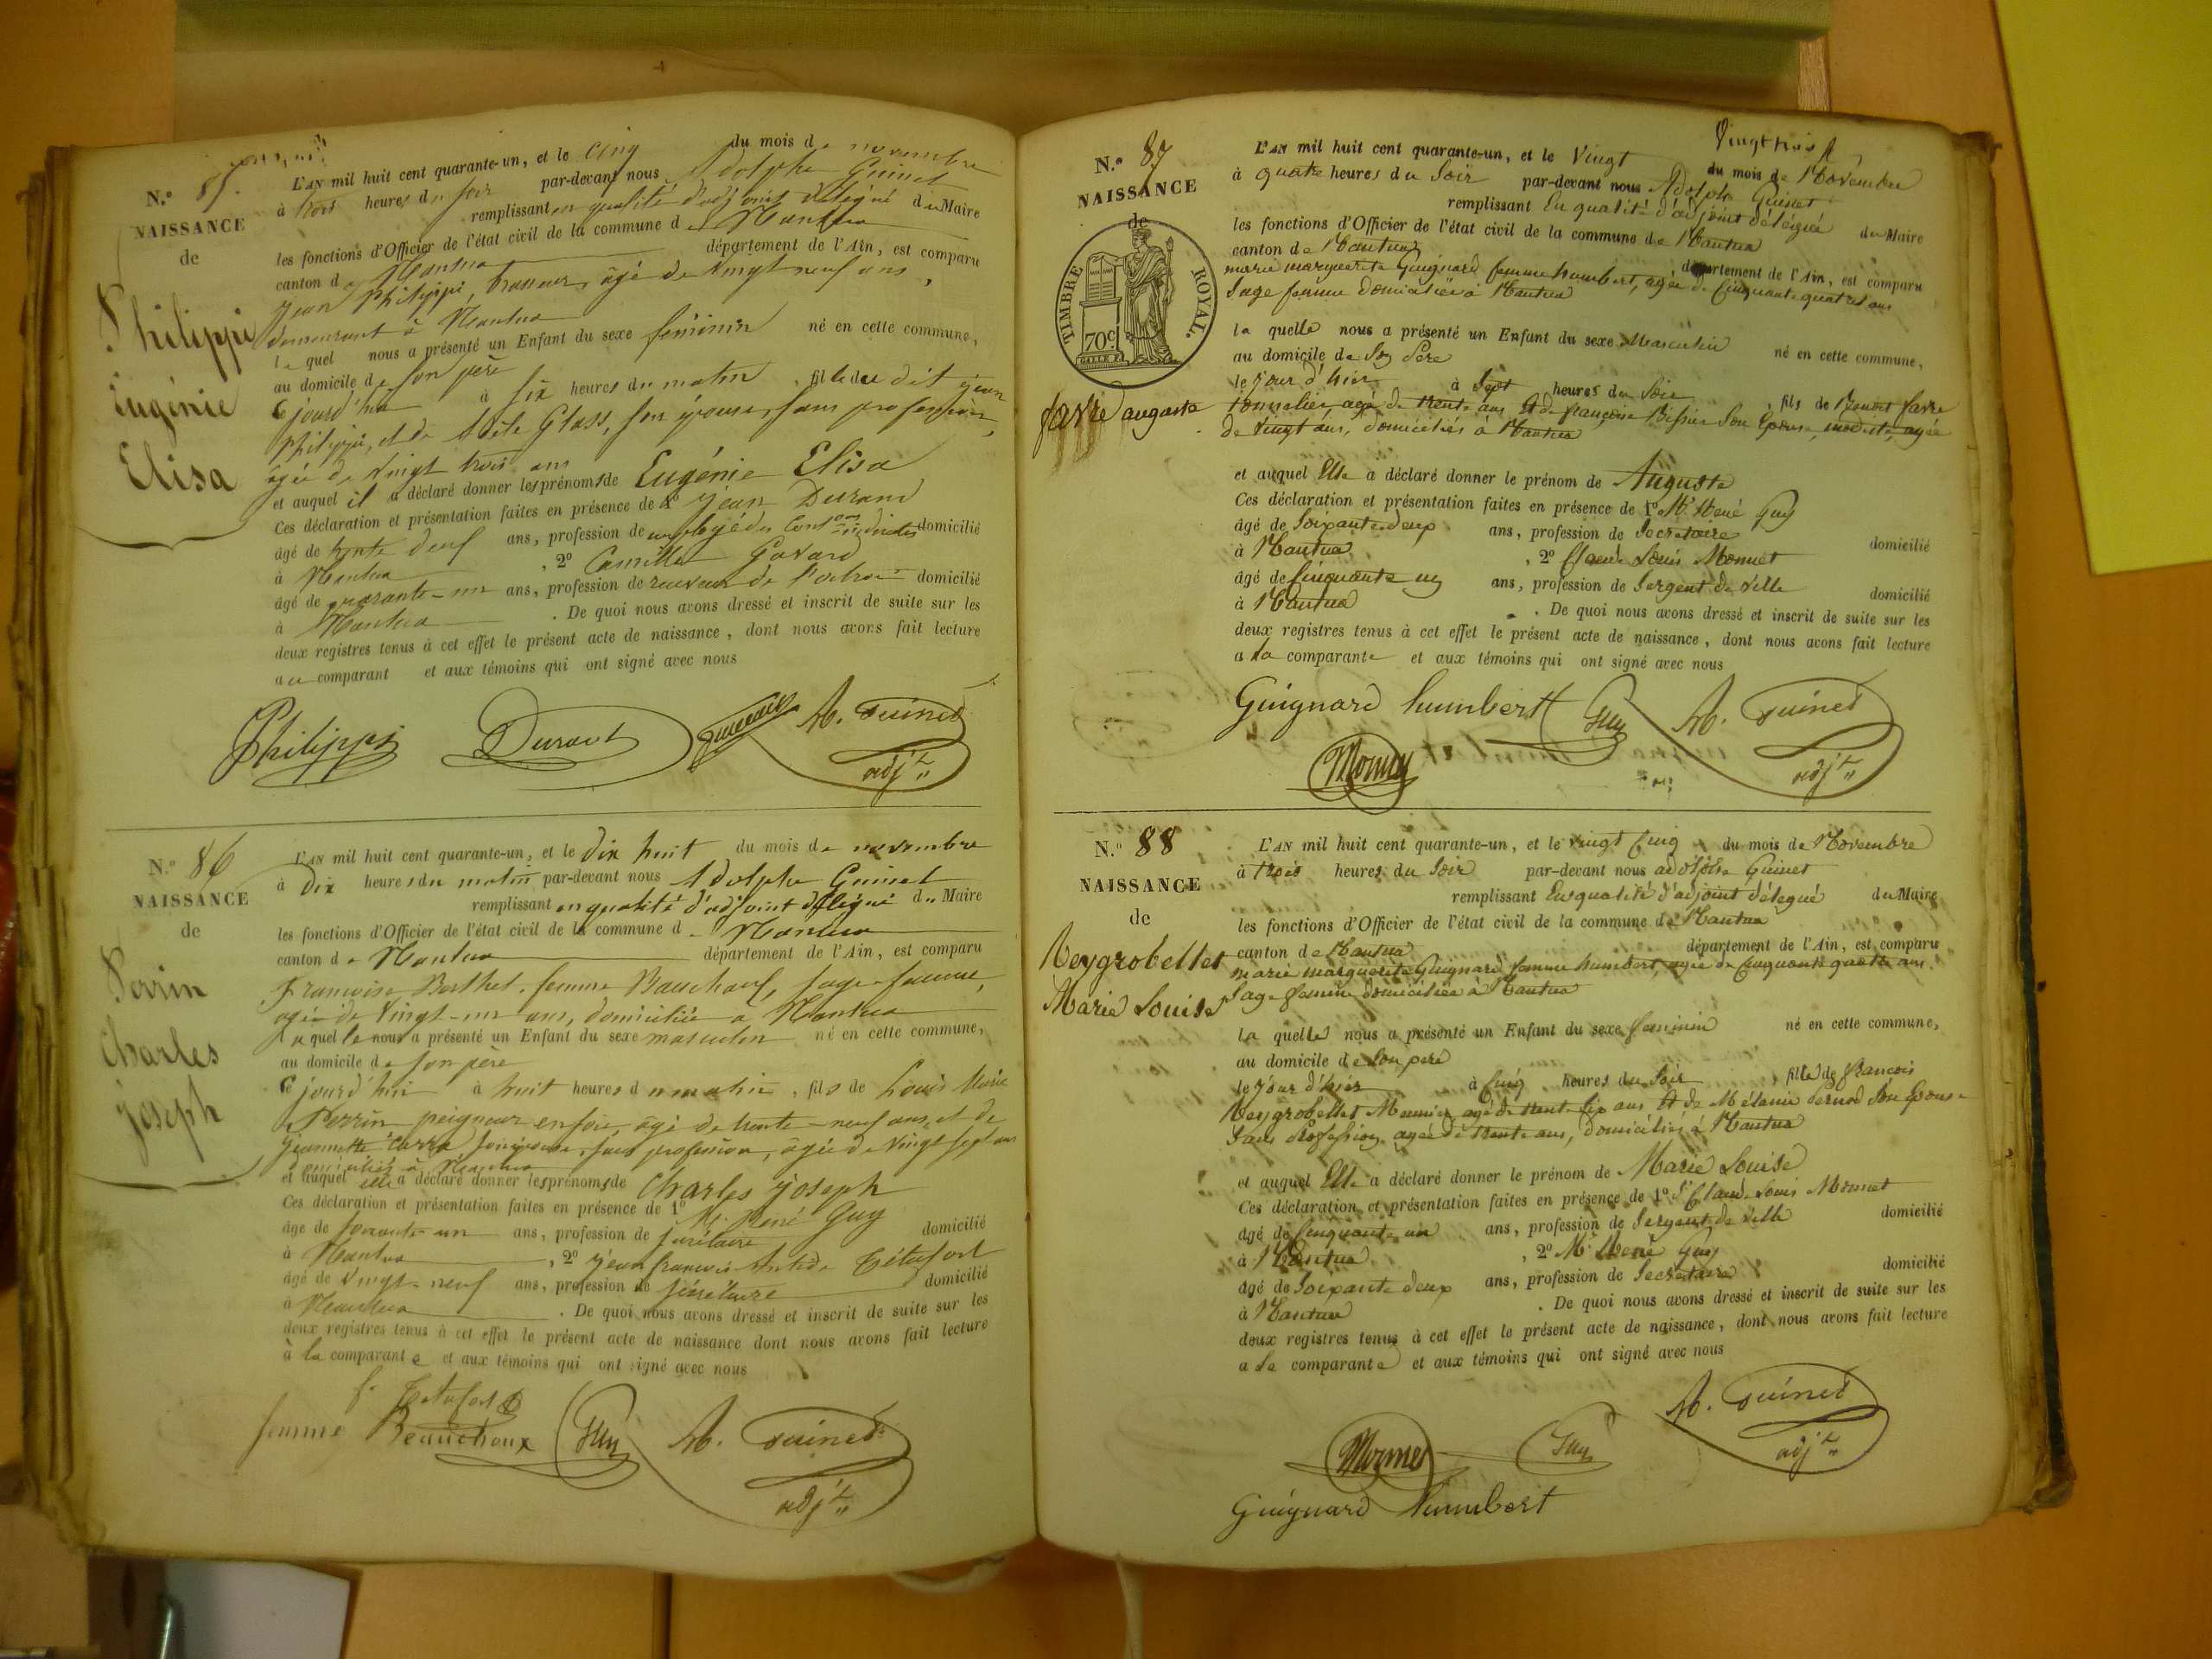 N.º 85.
NAISSANCE
de
Philippi
Eugénie
Elisa
L'AN mil huit cent quarante-un, et le cinq du mois de novembre
à trois heures du soir par-devant nous Adolphe Guinet
remplissant en qualité d'adjoint délégué du Maire
les fonctions d'Officier de l'état civil de la commune de Nantua
canton de Nantua département de l'Ain, est comparu
Jean Philippi, brasseur, âgé de vingt neuf ans,
demeurant à Nantua
lequel nous a présenté un Enfant du sexe féminin né en cette commune,
au domicile de son père
cejourd'hui à six heures du matin, fille de dit jean
Philippi, et de Adèle Glass, son épouse, sans profession,
âgée de vingt trois ans
et auquel il a déclaré donner les prénoms de Eugénie Elisa
Ces déclaration et présentation faites en présence de 1º Jean Durand
âgé de trente neuf ans, profession de employé des Contons indirectes domicilié
à Nantua, 2º Camille Gavard
âgé de quarante-un ans, profession de receveur de l'octroi domicilié
à Nantua. De quoi nous avons dressé et inscrit de suite sur les
deux registres tenus à cet effet le présent acte de naissance, dont nous avons fait lecture
au comparant et aux témoins qui ont signé avec nous
Philippi Durand A. Guinet
adjt
N.º 86
NAISSANCE
de
Perrin
Charles
Joseph
L'AN mil huit cent quarante-un, et le dix huit du mois de novembre
à dix heures du matin par-devant nous Adolphe Guinet
remplissant en qualité d'adjoint délégué du Maire
les fonctions d'Officier de l'état civil de la commune de Nantua
canton de Nantua département de l'Ain, est comparu
Françoise Berthet, femme sage-femme,
âgée de vingt-un ans, domiciliée à Nantua
laquelle nous a présenté un Enfant du sexe masculin né en cette commune,
au domicile de son père
cejourd'hui à huit heures du matin, fils de Louis Marie
Perrin peigneur en soie âgé de trente-neuf ans, et de
Jeannette Carra son épouse, sans profession, âgée de vingt sept ans
domiciliés à Nantua
et auquel elle a déclaré donner les prénoms de Charles Joseph
Ces déclaration et présentation faites en présence de 1º M. René Guy
âgé de soixante-un ans, profession de secrétaire domicilié
à Nantua, 2º Jean François
âgé de vingt-neuf ans, profession de secrétaire domicilié
à Nantua. De quoi nous avons dressé et inscrit de suite sur les
deux registres tenus à cet effet le présent acte de naissance dont nous avons fait lecture
à la comparante et aux témoins qui ont signé avec nous
femme Beauchoux Guy A. Guinet
adjt
N.º 87
NAISSANCE
de
TIMBRE ROYAL.
70c
favre auguste
Vingt trois
L'AN mil huit cent quarante-un, et le Vingt du mois de Novembre
à quatre heures du Soir par-devant nous Adolphe Guinet
remplissant En qualité d'adjoint délégué du Maire
les fonctions d'Officier de l'état civil de la commune de Nantua
canton de Nantua département de l'Ain, est comparu
marie marguerite Guignard femme humbert, agée de Cinquante quatre ans
Sage femme domiciliée à Nantua
la quelle nous a présenté un Enfant du sexe Masculin né en cette commune,
au domicile de Son Père
le jour d'hier à Sept heures du Soir, fils de Benoit favre
tonnelier agé de trente ans Et de françoise Son Epouse, modiste, agée
de vingt ans, domiciliés à Nantua
et auquel Elle a déclaré donner le prénom de Auguste
Ces déclaration et présentation faites en présence de 1º Mr René Guy
âgé de Soixante deux ans, profession de Secretaire domicilié
à Nantua, 2º Claude Louis Monnet
âgé de Cinquante un ans, profession de Sergent de Ville domicilié
à Nantua. De quoi nous avons dressé et inscrit de suite sur les
deux registres tenus à cet effet le présent acte de naissance, dont nous avons fait lecture
a la comparante et aux témoins qui ont signé avec nous
Guignard humbert Guy A. Guinet
Monnet adjt
N.º 88
NAISSANCE
de
Neygrobellet
Marie Louise
L'AN mil huit cent quarante-un, et le vingt Cinq du mois de Novembre
à trois heures du Soir par-devant nous adolphe Guinet
remplissant En qualité d'adjoint délegué du Maire
les fonctions d'Officier de l'état civil de la commune de Nantua
canton de Nantua département de l'Ain, est comparu
marie marguerite Guignard femme humbert, agée de Cinquante quatre ans
Sage femme domiciliée à Nantua
la quelle nous a présenté un Enfant du sexe feminin né en cette commune,
au domicile de Son pere
le jour d'hier à Cinq heures du Soir, fille de francois
Neygrobellet Meunier agé de trente Six ans Et de Mélanie Pernod Son Epouse
Sans Profession agée de trente ans, domiciliés à Nantua
et auquel Elle a déclaré donner le prénom de Marie Louise
Ces déclaration et présentation faites en présence de 1º Sr Claude Louis Monnet
âgé de Cinquante un ans, profession de Sergent de Ville domicilié
à Nantua, 2º Mr René Guy
âgé de Soixante deux ans, profession de Secretaire domicilié
à Nantua. De quoi nous avons dressé et inscrit de suite sur les
deux registres tenus à cet effet le présent acte de naissance, dont nous avons fait lecture
a la comparante et aux témoins qui ont signé avec nous
A. Guinet
Monnet Guy adjt
Guignard humbert